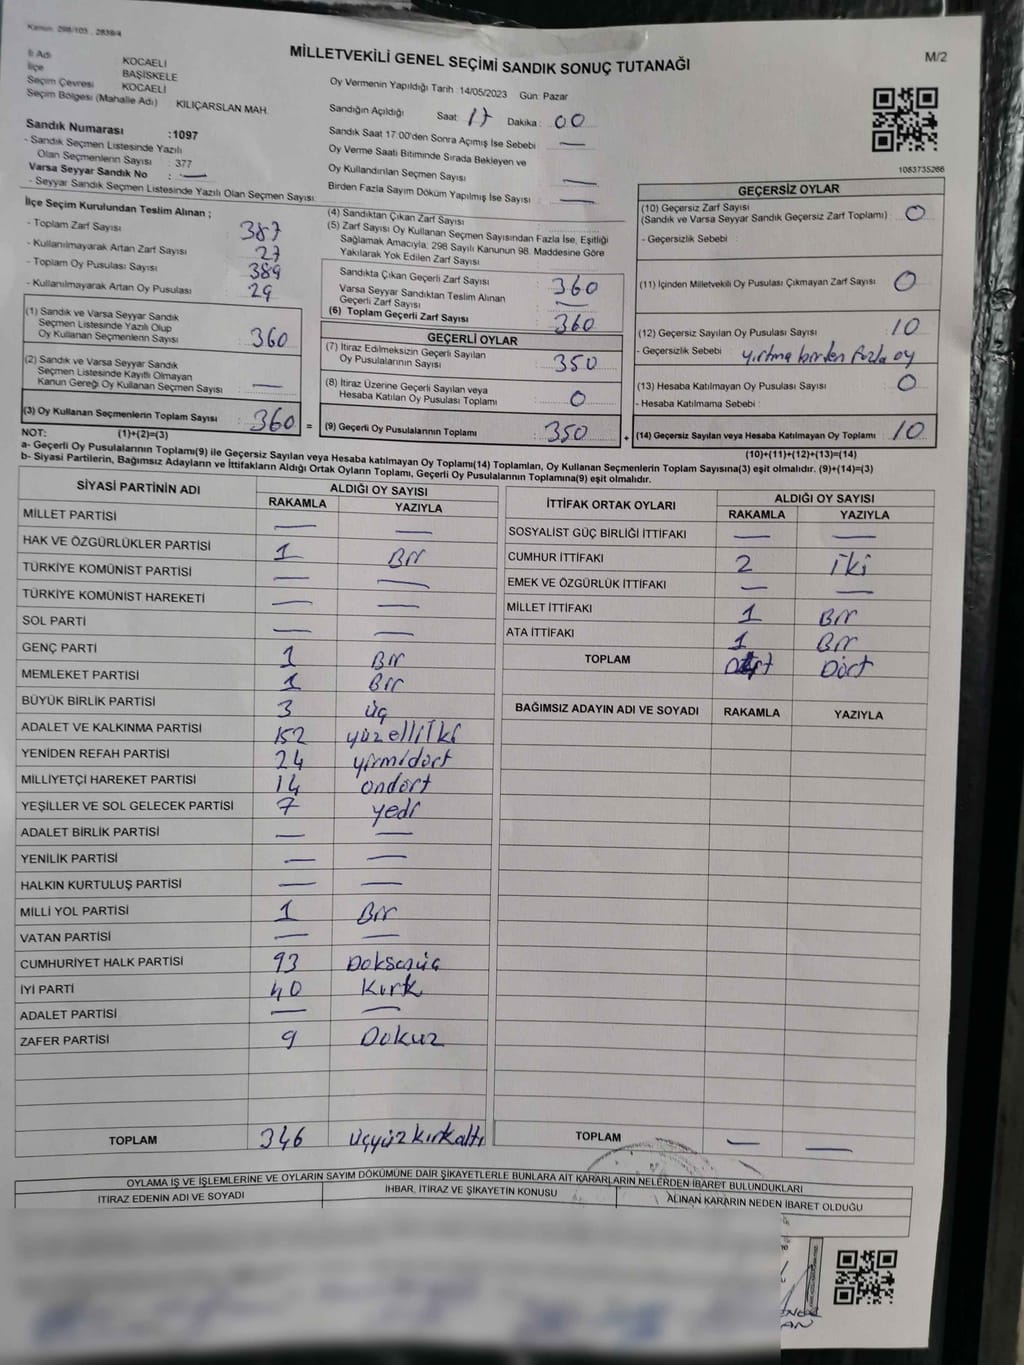 Kanun: 298/103 , 2839/4
MİLLETVEKİLİ GENEL SEÇİMİ SANDIK SONUÇ TUTANAĞI
M/2
İl Adı KOCAELİ
İlçe BAŞİSKELE
Seçim Çevresi KOCAELİ
Seçim Bölgesi (Mahalle Adı) KILIÇARSLAN MAH.
Oy Vermenin Yapıldığı Tarih :14/05/2023 Gün: Pazar
Sandığın Açıldığı Saat: 17 Dakika : 00
Sandık Saat 17:00'den Sonra Açımış İse Sebebi : —
Oy Verme Saati Bitiminde Sırada Bekleyen ve
Oy Kullandırılan Seçmen Sayısı : —
Birden Fazla Sayım Döküm Yapılmış İse Sayısı : —
Sandık Numarası :1097
- Sandık Seçmen Listesinde Yazılı
Olan Seçmenlerin Sayısı : 377
Varsa Seyyar Sandık No : —
- Seyyar Sandık Seçmen Listesinde Yazılı Olan Seçmen Sayısı
1083735266
İlçe Seçim Kurulundan Teslim Alınan ;
- Toplam Zarf Sayısı : 387
- Kullanılmayarak Artan Zarf Sayısı : 27
- Toplam Oy Pusulası Sayısı : 389
- Kullanılmayarak Artan Oy Pusulası : 29
(1) Sandık ve Varsa Seyyar Sandık
Seçmen Listesinde Yazılı Olup
Oy Kullanan Seçmenlerin Sayısı : 360
(2) Sandık ve Varsa Seyyar Sandık
Seçmen Listesinde Kayıtlı Olmayan
Kanun Gereği Oy Kullanan Seçmen Sayısı : —
(3) Oy Kullanan Seçmenlerin Toplam Sayısı : 360 =
(4) Sandıktan Çıkan Zarf Sayısı
(5) Zarf Sayısı Oy Kullanan Seçmen Sayısından Fazla İse, Eşitliği
Sağlamak Amacıyla; 298 Sayılı Kanunun 98. Maddesine Göre
Yakılarak Yok Edilen Zarf Sayısı
Sandıkta Çıkan Geçerli Zarf Sayısı : 360
Varsa Seyyar Sandıktan Teslim Alınan
Geçerli Zarf Sayısı : —
(6) Toplam Geçerli Zarf Sayısı : 360
GEÇERLİ OYLAR
(7) İtiraz Edilmeksizin Geçerli Sayılan
Oy Pusulalarının Sayısı : 350
(8) İtiraz Üzerine Geçerli Sayılan veya
Hesaba Katılan Oy Pusulası Toplamı : 0
(9) Geçerli Oy Pusulalarının Toplamı : 350 +
GEÇERSİZ OYLAR
(10) Geçersiz Zarf Sayısı
(Sandık ve Varsa Seyyar Sandık Geçersiz Zarf Toplamı) : 0
- Geçersizlik Sebebi :
(11) İçinden Milletvekili Oy Pusulası Çıkmayan Zarf Sayısı : 0
(12) Geçersiz Sayılan Oy Pusulası Sayısı : 10
- Geçersizlik Sebebi : yırtma birden fazla oy
(13) Hesaba Katılmayan Oy Pusulası Sayısı : 0
- Hesaba Katılmama Sebebi :
(14) Geçersiz Sayılan veya Hesaba Katılmayan Oy Toplamı : 10
NOT: (1)+(2)=(3)
(10)+(11)+(12)+(13)=(14)
a- Geçerli Oy Pusulalarının Toplamı(9) ile Geçersiz Sayılan veya Hesaba katılmayan Oy Toplamı(14) Toplamları, Oy Kullanan Seçmenlerin Toplam Sayısına(3) eşit olmalıdır. (9)+(14)=(3)
b- Siyasi Partilerin, Bağımsız Adayların ve İttifakların Aldığı Ortak Oyların Toplamı, Geçerli Oy Pusulalarının Toplamına(9) eşit olmalıdır.
SİYASİ PARTİNİN ADI ALDIĞI OY SAYISI
RAKAMLA YAZIYLA
MİLLET PARTİSİ — —
HAK VE ÖZGÜRLÜKLER PARTİSİ 1 Bir
TÜRKİYE KOMÜNİST PARTİSİ — —
TÜRKİYE KOMÜNİST HAREKETİ — —
SOL PARTİ — —
GENÇ PARTİ 1 Bir
MEMLEKET PARTİSİ 1 Bir
BÜYÜK BİRLİK PARTİSİ 3 üç
ADALET VE KALKINMA PARTİSİ 152 yüzelliİki
YENİDEN REFAH PARTİSİ 24 yirmidört
MİLLİYETÇİ HAREKET PARTİSİ 14 ondört
YEŞİLLER VE SOL GELECEK PARTİSİ 7 yedi
ADALET BİRLİK PARTİSİ — —
YENİLİK PARTİSİ — —
HALKIN KURTULUŞ PARTİSİ — —
MİLLİ YOL PARTİSİ 1 Bir
VATAN PARTİSİ — —
CUMHURİYET HALK PARTİSİ 93 Doksanüç
İYİ PARTİ 40 Kırk
ADALET PARTİSİ — —
ZAFER PARTİSİ 9 Dokuz
TOPLAM 346 üçyüzkırkaltı
İTTİFAK ORTAK OYLARI ALDIĞI OY SAYISI
RAKAMLA YAZIYLA
SOSYALİST GÜÇ BİRLİĞİ İTTİFAKI — —
CUMHUR İTTİFAKI 2 iki
EMEK VE ÖZGÜRLÜK İTTİFAKI — —
MİLLET İTTİFAKI 1 Bir
ATA İTTİFAKI 1 Bir
TOPLAM Dört
BAĞIMSIZ ADAYIN ADI VE SOYADI RAKAMLA YAZIYLA
TOPLAM — —
OYLAMA İŞ VE İŞLEMLERİNE VE OYLARIN SAYIM DÖKÜMÜNE DAİR ŞİKAYETLERLE BUNLARA AİT KARARLARIN NELERDEN İBARET BULUNDUKLARI
İTİRAZ EDENİN ADI VE SOYADI İHBAR, İTİRAZ VE ŞİKAYETİN KONUSU ALINAN KARARIN NEDEN İBARET OLDUĞU